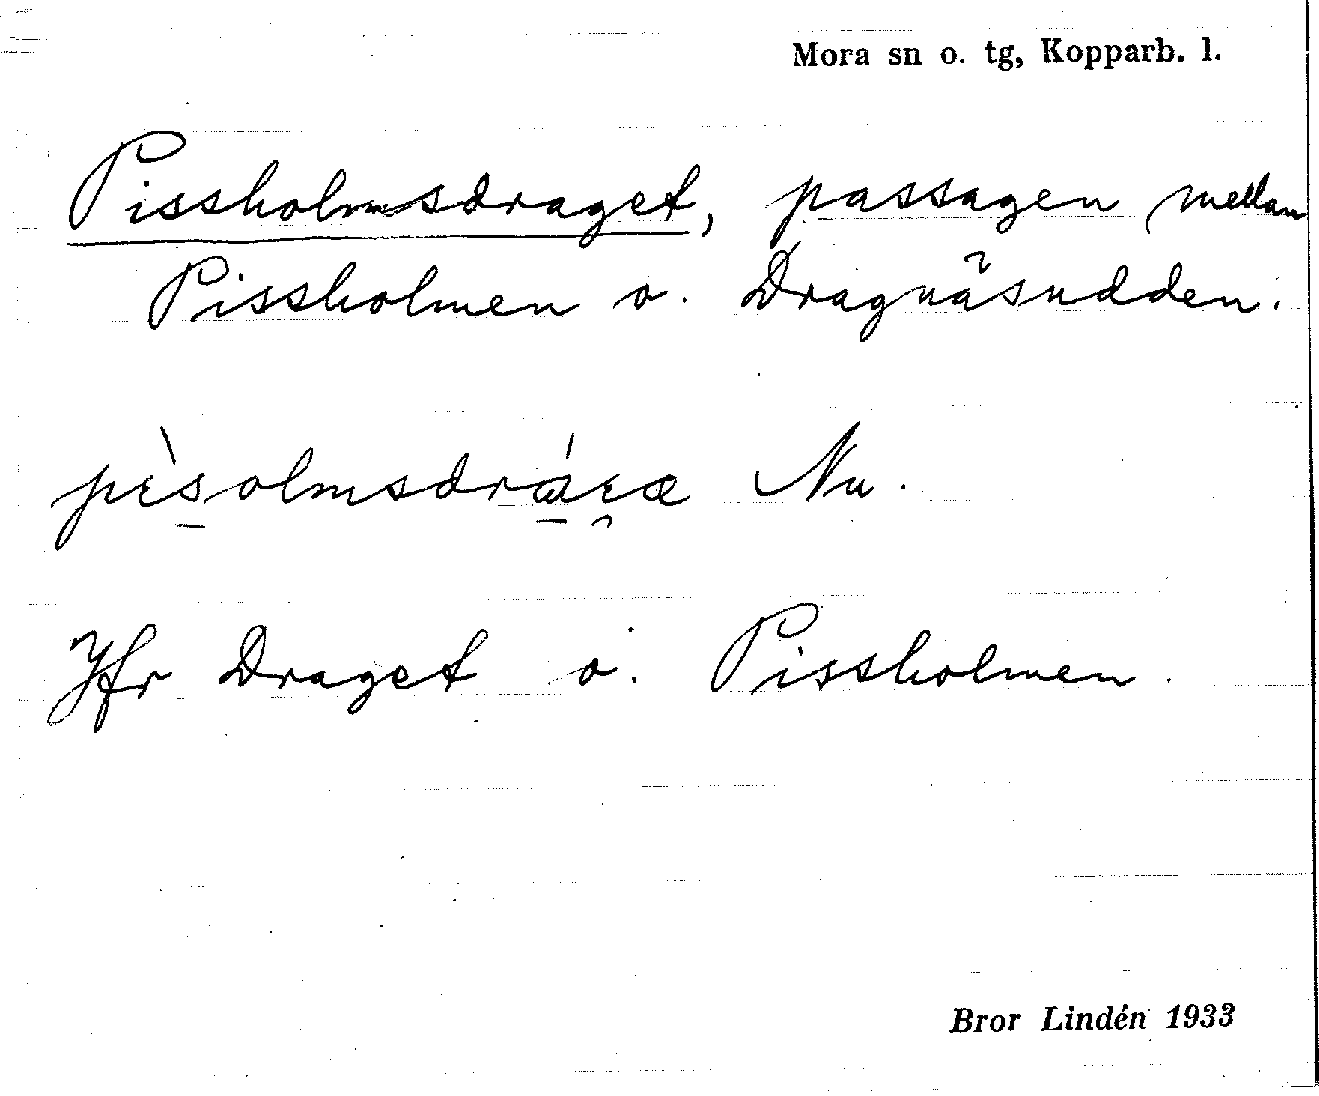 Mora sn o. tg, Kopparb. l.
Pissholmsdraget, passagen mellan
Pissholmen o. Dragnäsudden.
Nu.
Jfr Draget o. Pissholmen.
Bror Lindén 1933